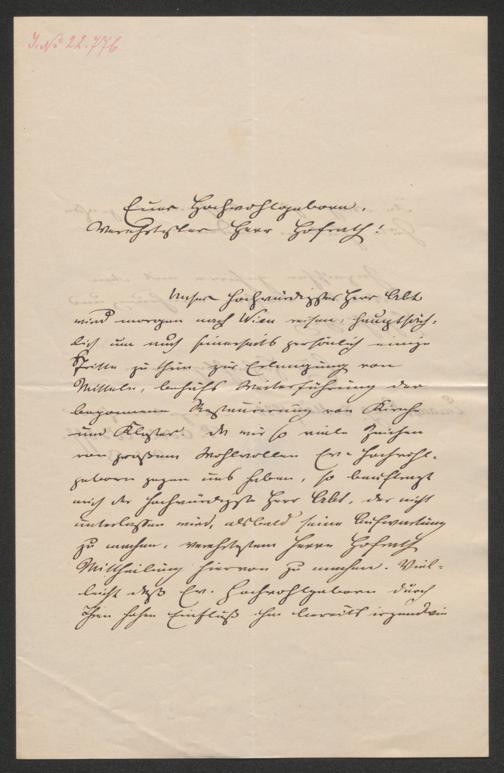 J. N. 22.776
Euer Hochwohlgeboren,
Verehrtester Herr Hofrath!
Unser hochwürdigster Herr Abt
wird morgen nach Wien reisen, hauptsäch-
lich um auch seinerseits persönlich einige
Schritte zu thun zur Erlangung von
Mitteln, behufs Weiterführung der
begonnenen Restaurierung von Kirche
und Kloster. Da wir so viele Zeichen
von großem Wohlwollen Ew. Hochwohl-
geboren gegen uns haben, so beauftragt
mich der hochwürdigste Herr Abt, der nicht
unterlassen wird, alsbald seine Aufwartung
zu machen, verehrtestem Herrn Hofrath
Mittheilung hiervon zu machen. Viel-
leicht daß Ew. Hochwohlgeboren durch
Ihren hohen Einfluß ihm bereits irgendwie